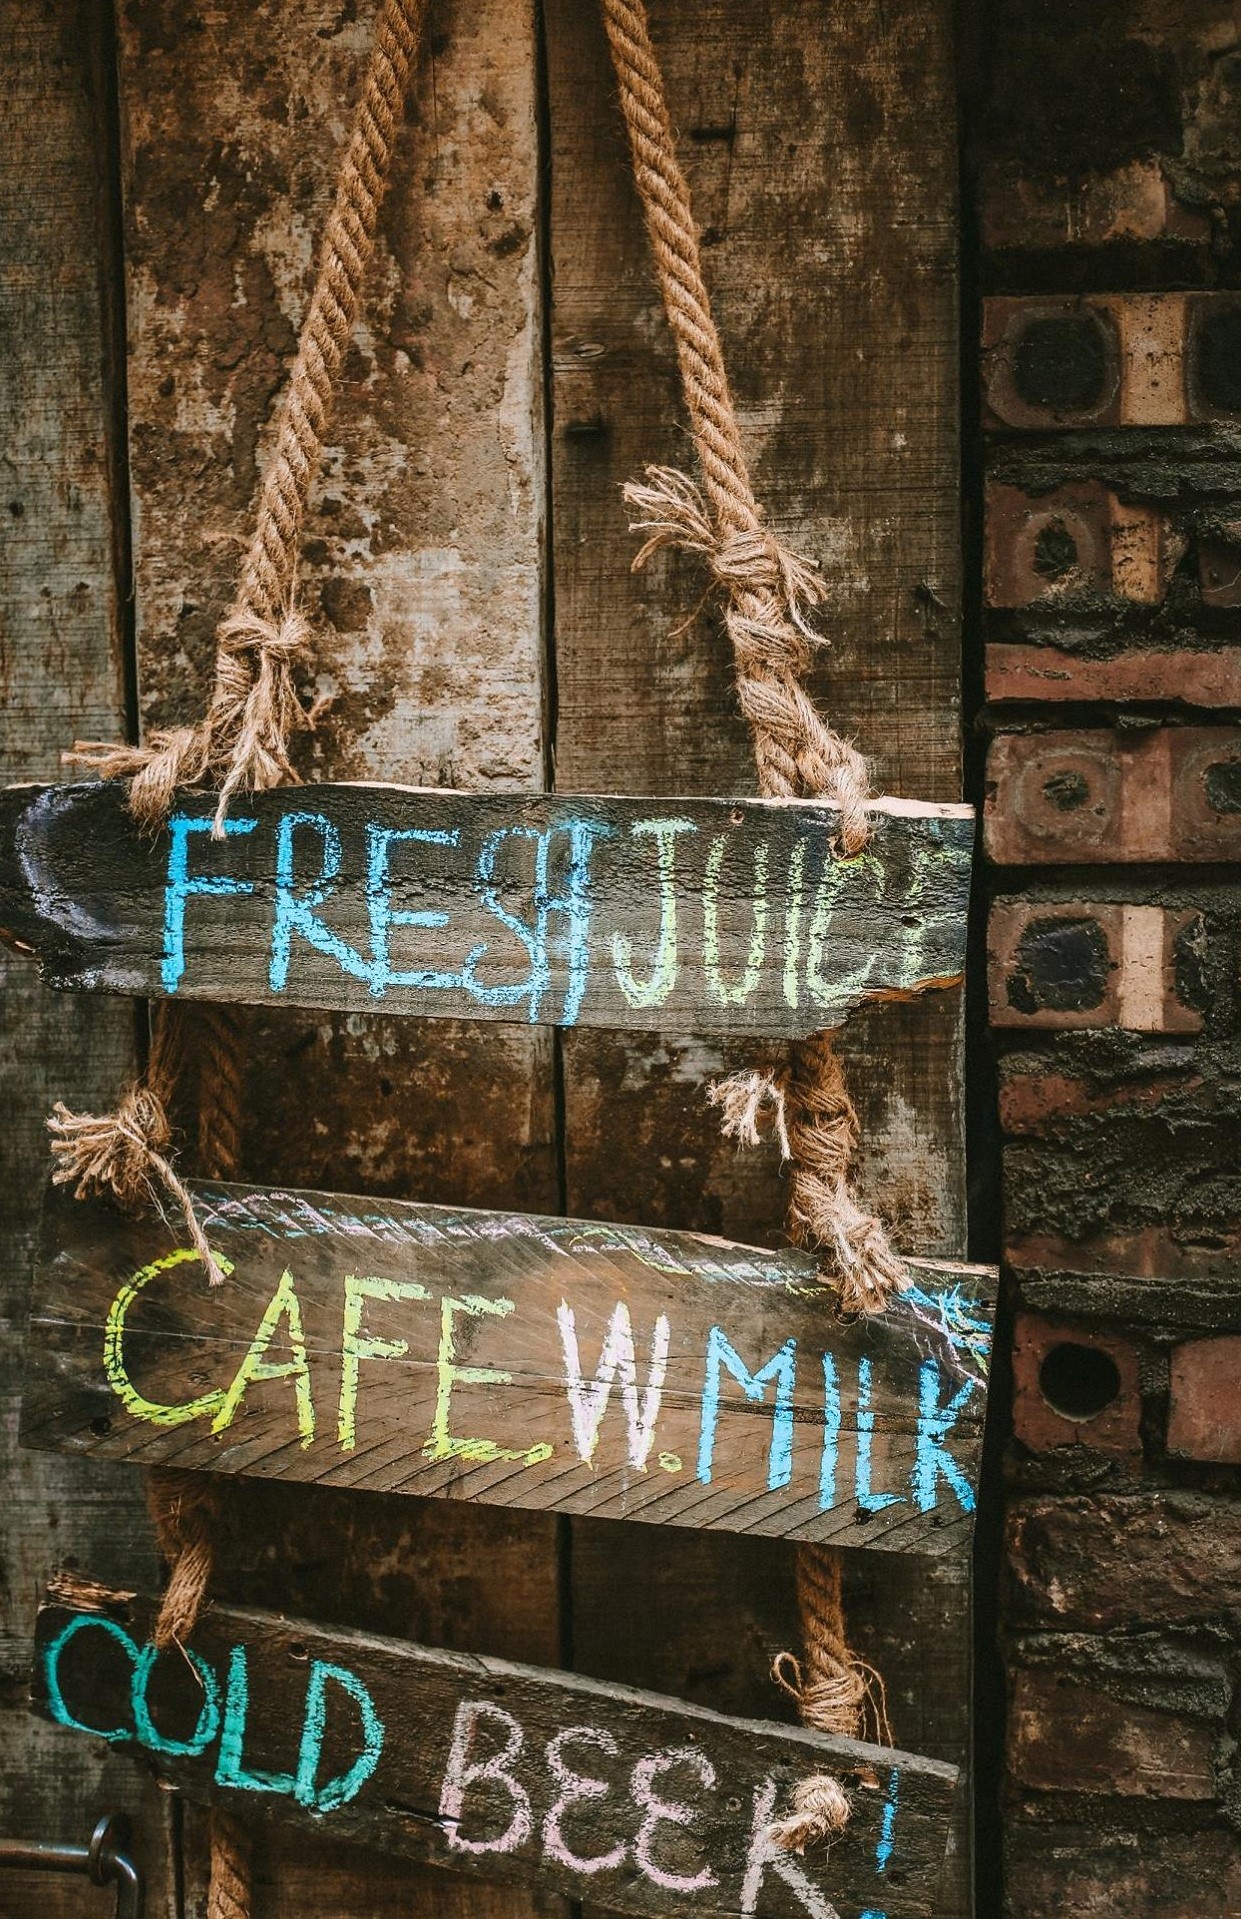 FRESH JUICE
CAFE W. MILK
COLD BEER!